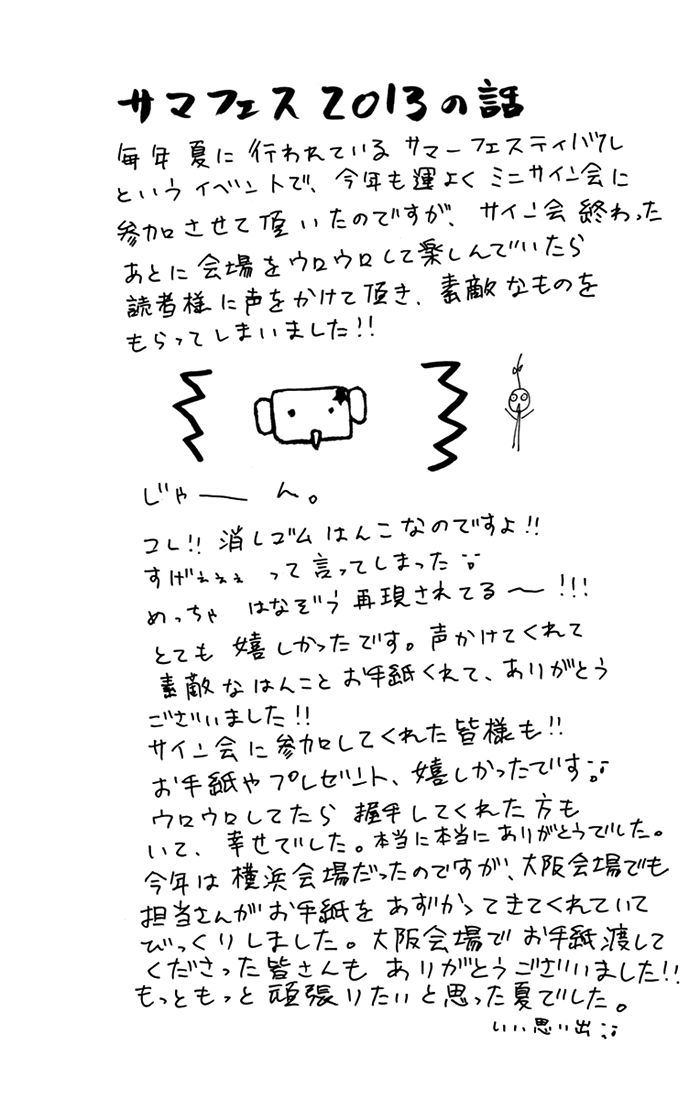 サマフェス2013の話
毎年夏に行われているサマーフェスティバル
というイベントで、今年も運よくミニサイン会に
参加させて頂いたのですが、サイン会終わった
あとに会場をウロウロして楽しんでいたら
読者様に声をかけて頂き、素敵なものを
もらってしまいました!!
じゃーん。
コレ!!消しゴムはんこなのですよ!!
すげぇぇぇって言ってしまった
めっちゃはなぞう再現されてる〜!!!
とても嬉しかったです。声かけてくれて
素敵なはんことお手紙くれて、ありがとう
ございました!!
サイン会に参加してくれた皆様も!!
お手紙やプレゼント、嬉しかったです
ウロウロしてたら握手してくれた方も
いて、幸せでした。本当に本当にありがとうでした。
今年は横浜会場だったのですが、大阪会場でも
担当さんがお手紙をあずかってきてくれていて
びっくりしました。大阪会場でお手紙渡して
くださった皆さんもありがとうございました!!
もっともっと頑張りたいと思った夏でした。
いい思い出